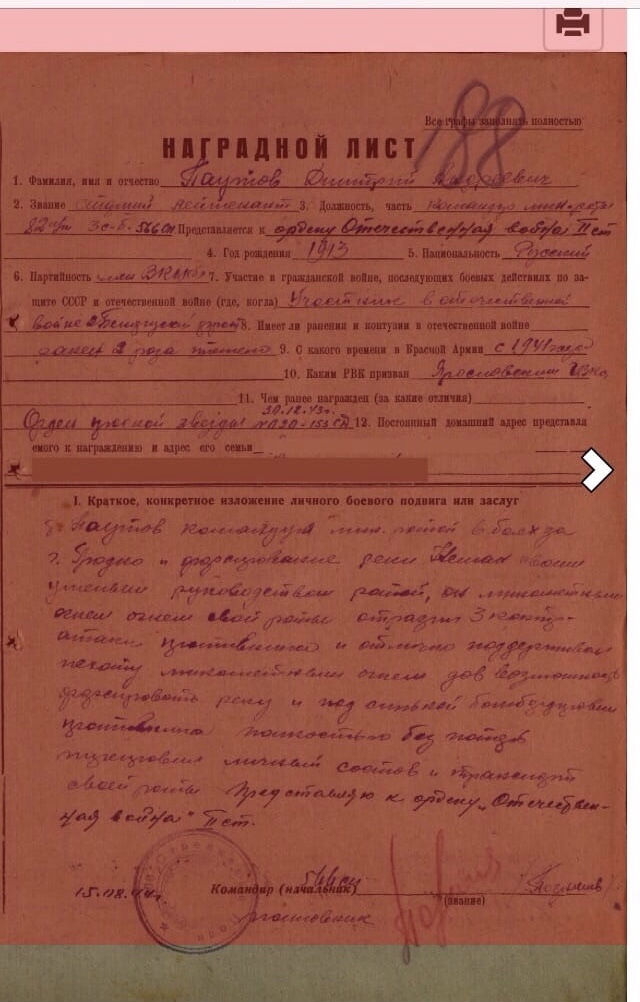 188
Все графы заполнять полностью
НАГРАДНОЙ ЛИСТ
1. Фамилия, имя и отчество Паутов Дмитрий Андреевич
2. Звание лейтенант 3. Должность, часть командир мин. роты
82 м/м 3 с-б. 566 СП Представляется к ордену Отечественная война II ст
4. Год рождения 1913 5. Национальность Русский
6. Партийность член ВКП(б) 7. Участие в гражданской войне, последующих боевых действиях по за-
щите СССР и отечественной войне (где, когда) Участник в отечественной
войне 2 Белорусский фронт 8. Имеет ли ранения и контузии в отечественной войне
ранен 2 раза 9. С какого времени в Красной Армии с 1941 года
10. Каким РВК призван Ярославским
11. Чем ранее награжден (за какие отличия)
30.12.43г.
Орден красной звезды № 020 - 153 СД 12. Постоянный домашний адрес представля
емого к награждению и адрес его семьи
I. Краткое, конкретное изложение личного боевого подвига или заслуг
Паутов командуя мин. ротой в боях за
г. Гродно и форсирование реки Неман своим
умелым руководством ротой, он минометным
огнем огнем свой роты отразил 3 контр-
атаки противника и отлично поддерживал
пехоту минометным огнем дав возможность
форсировать реку и под сильной бомбардировкой
противника полностью без потерь
личный состав и транспорт
своей роты Представляю к ордену „Отечествен-
ная война" II ст.
15.08.44г. Командир (начальник) 566 СП
(звание)